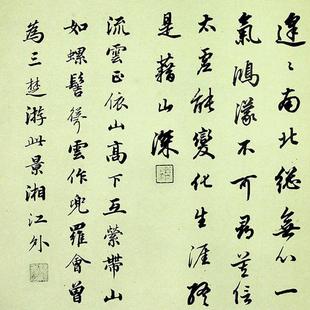 逢〻南北總無心一
氣鴻濛不可尋莫信
太虛能變化生涯終
是藉山深
流雲正依山高下互縈帶山
如螺髻雲作兜羅會曾
為三楚游此景湘江外